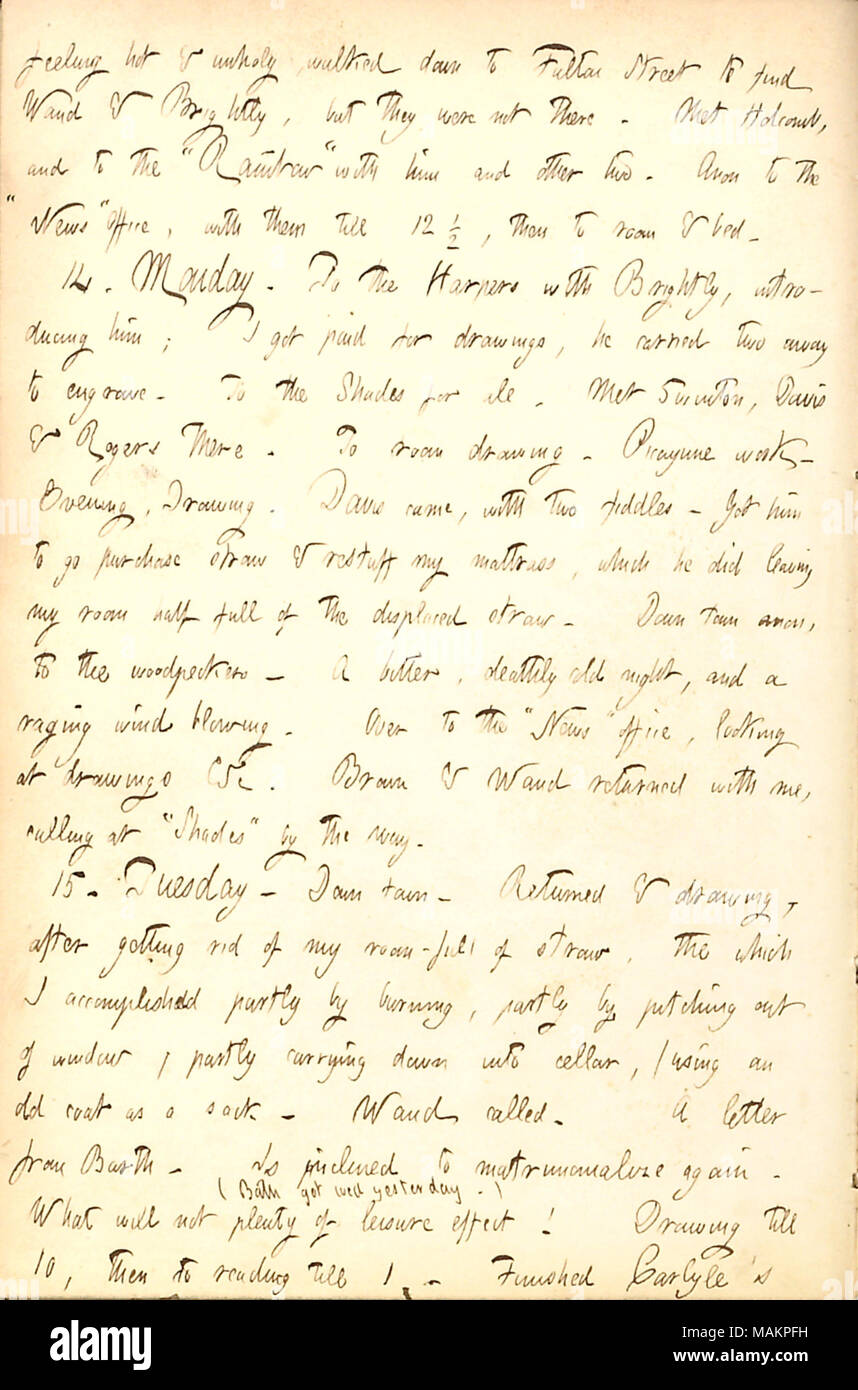 feeling hot & unholy walked down to Fulton Street to find
Waud & Brightly, but they were not there. Met Holcomb,
and to the "Rainbow" with him and other two. Anon to the
"News" office, with them till 12 ½, then to room & bed.
14. Monday. To the Harpers with Brightly, intro-
ducing him; I got paid for drawings, he carried two away
to engrave. To the Shades for ale. Met Swinton, Davis
& Rogers there. To room drawing. Picayune work.
Evening, Drawing. Davis came, with two fiddles. Got him
to go purchase straw & restuff my mattrass, which he did leaving
my room half full of the displaced straw. Down town anon,
to the woodpeckers. A bitter, deathly cold night, and a
raging wind blowing. Over to the "News" office, looking
at drawings &c. Brown & Waud returned with me,
calling at "Shades" by the way.
15. Tuesday. Down town. Returned & drawing,
after getting rid of my room-full of straw, the which
I accomplished partly by burning, partly by pitching out
of window, partly carrying down into cellar, (using an
old coat as a sack. Waud called. A letter
from Barth. Is inclined to matrimonialize again.
( got wed yesterday.)
What will not plenty of leisure effect! Drawing till
10, then to reading till 1. Finished Carlyle's
alamy
Image ID: MAKPFH
www.alamy.com